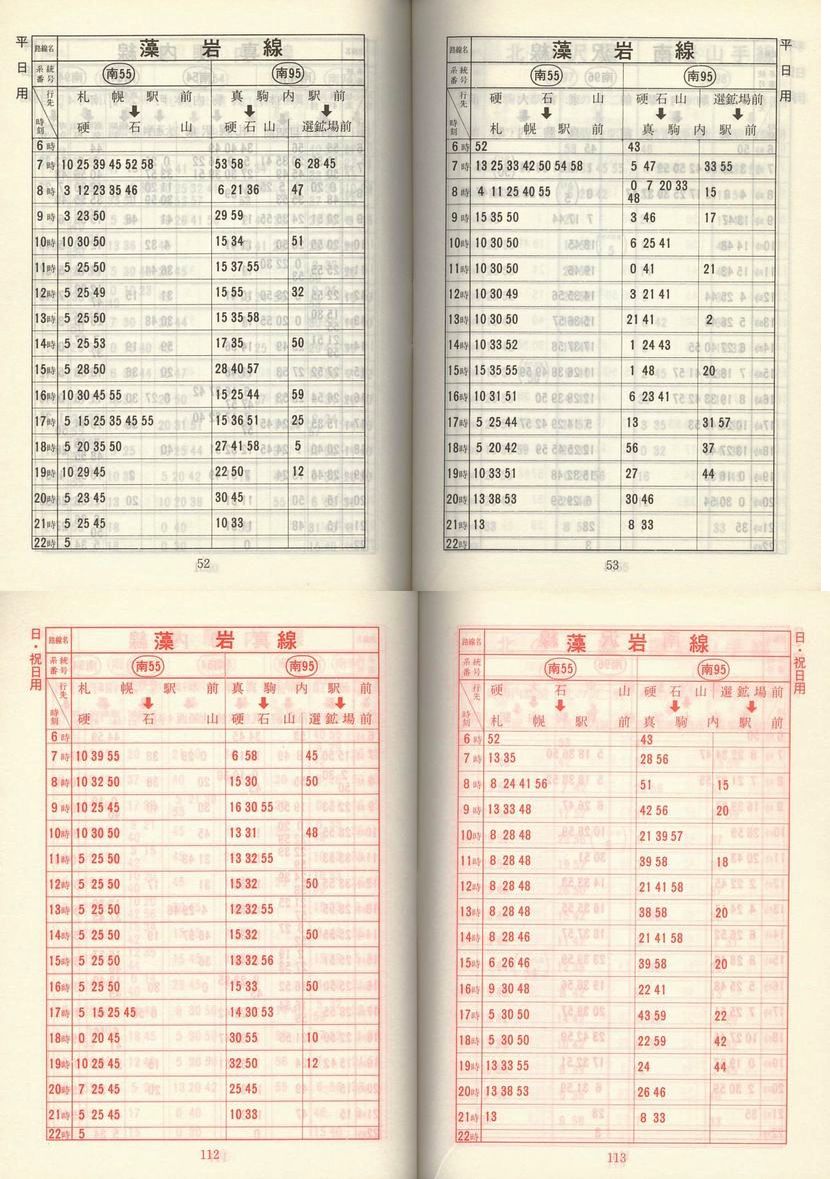 平日用
路線名 藻岩線
系統番号 南55 南95
行先 札幌駅前 真駒内駅前
時刻 硬石山 硬石山 選鉱場前
6時
7時 10 25 39 45 52 58 53 58 6 28 45
8時 3 12 23 35 46 6 21 36 47
9時 3 23 50 29 59
10時 10 30 50 15 34 51
11時 5 25 50 15 37 55
12時 5 25 49 15 55 32
13時 5 25 50 15 35 58
14時 5 25 53 17 35 50
15時 5 28 50 28 40 57
16時 10 30 45 55 15 25 44 59
17時 5 15 25 35 45 55 15 36 51 25
18時 5 20 35 50 27 41 58 5
19時 10 29 45 22 50 12
20時 5 23 45 30 45
21時 5 25 45 10 33
22時 5
52
平日用
路線名 藻岩線
系統番号 南55 南95
行先 硬石山 硬石山 選鉱場前
時刻 札幌駅前 真駒内駅前
6時 52 43
7時 13 25 33 42 50 54 58 5 47 33 55
8時 4 11 25 40 55 0 7 20 33 48 15
9時 15 35 50 3 46 17
10時 10 30 50 6 25 41
11時 10 30 50 0 41 21
12時 10 30 49 3 21 41
13時 10 30 50 21 41 2
14時 10 33 52 1 24 43
15時 15 35 55 1 48 20
16時 10 31 51 6 23 41
17時 5 25 44 13 31 57
18時 5 20 42 56 37
19時 10 33 51 27 44
20時 13 38 53 30 46
21時 13 8 33
22時
53
日・祝日用
路線名 藻岩線
系統番号 南55 南95
行先 札幌駅前 真駒内駅前
時刻 硬石山 硬石山 選鉱場前
6時
7時 10 39 55 6 58 45
8時 10 32 50 15 30 50
9時 10 25 45 16 30 55
10時 10 30 50 13 31 48
11時 5 25 50 13 32 55
12時 5 25 50 15 32 50
13時 5 25 50 12 32 55
14時 5 25 50 15 32 50
15時 5 25 50 13 32 56
16時 5 25 50 15 33 50
17時 5 15 25 45 14 30 53
18時 0 20 45 30 55 10
19時 10 25 45 32 50 12
20時 7 25 45 25 45
21時 5 25 45 10 33
22時 5
112
日・祝日用
路線名 藻岩線
系統番号 南55 南95
行先 硬石山 硬石山 選鉱場前
時刻 札幌駅前 真駒内駅前
6時 52 43
7時 13 35 28 56
8時 8 24 41 56 51 15
9時 13 33 48 42 56 20
10時 8 28 48 21 39 57
11時 8 28 48 39 58 18
12時 8 28 48 21 41 58
13時 8 28 48 38 58 20
14時 8 28 46 21 41 58
15時 6 26 46 39 58 20
16時 9 30 48 22 41
17時 5 30 50 43 59 22
18時 5 30 50 22 59 42
19時 13 33 55 24 44
20時 13 38 53 26 46
21時 13 8 33
22時
113